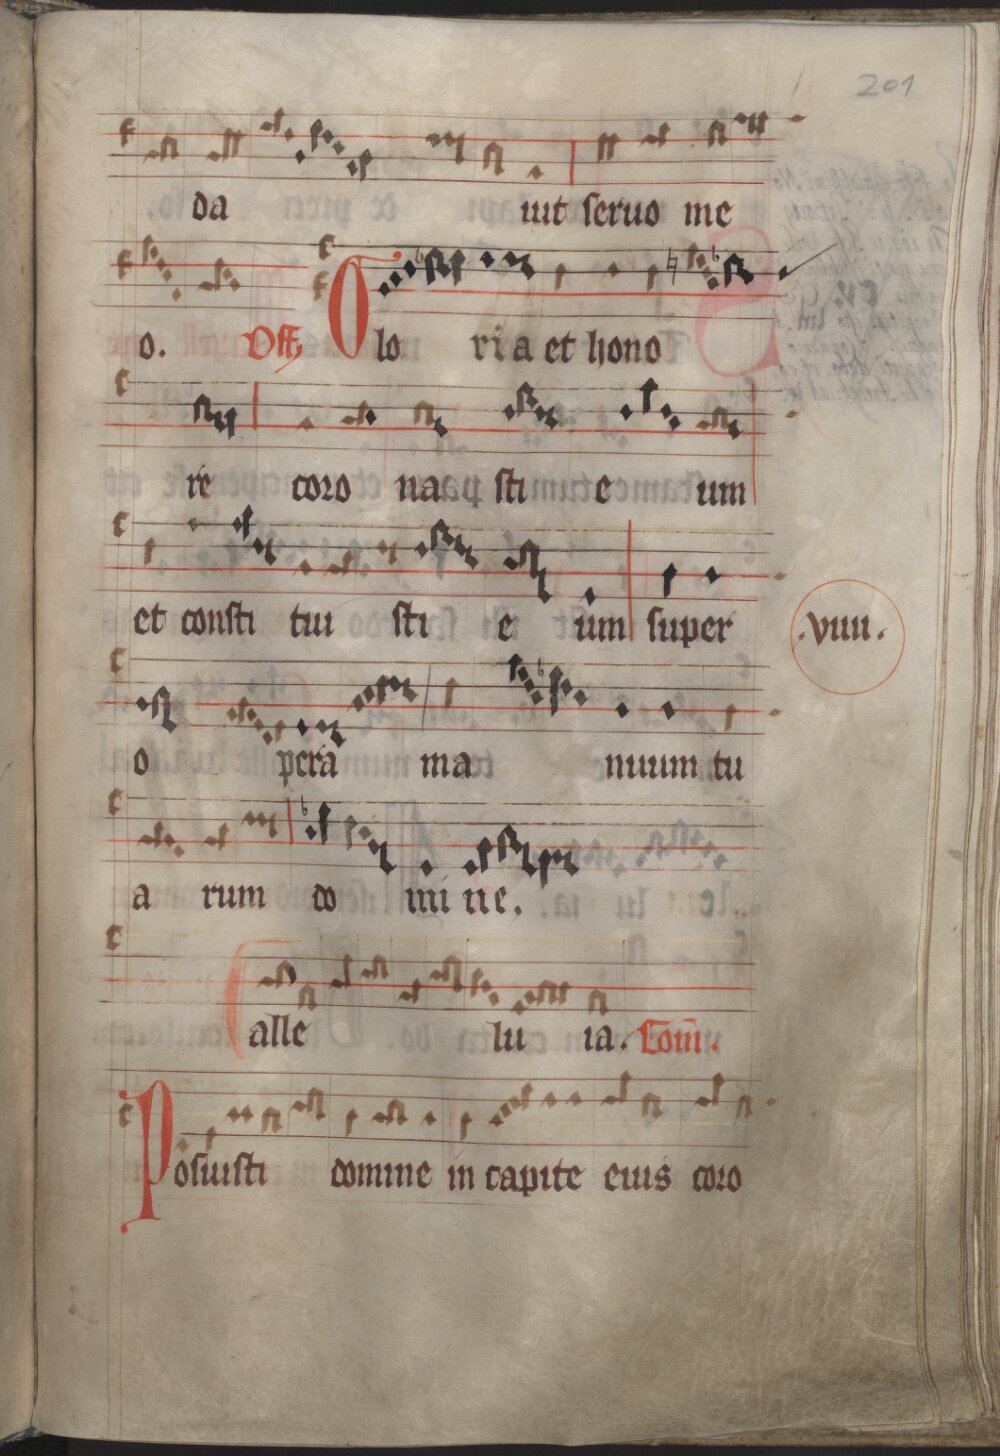 201
da uit seruo me
o. Off, Glo ria et hono
re coro na sti e um
et consti tui sti e um super
.viiii.
o pera ma nuum tu
a rum do mi ne.
alle lu ia. Com̄.
Posuisti domine in capite eius coro